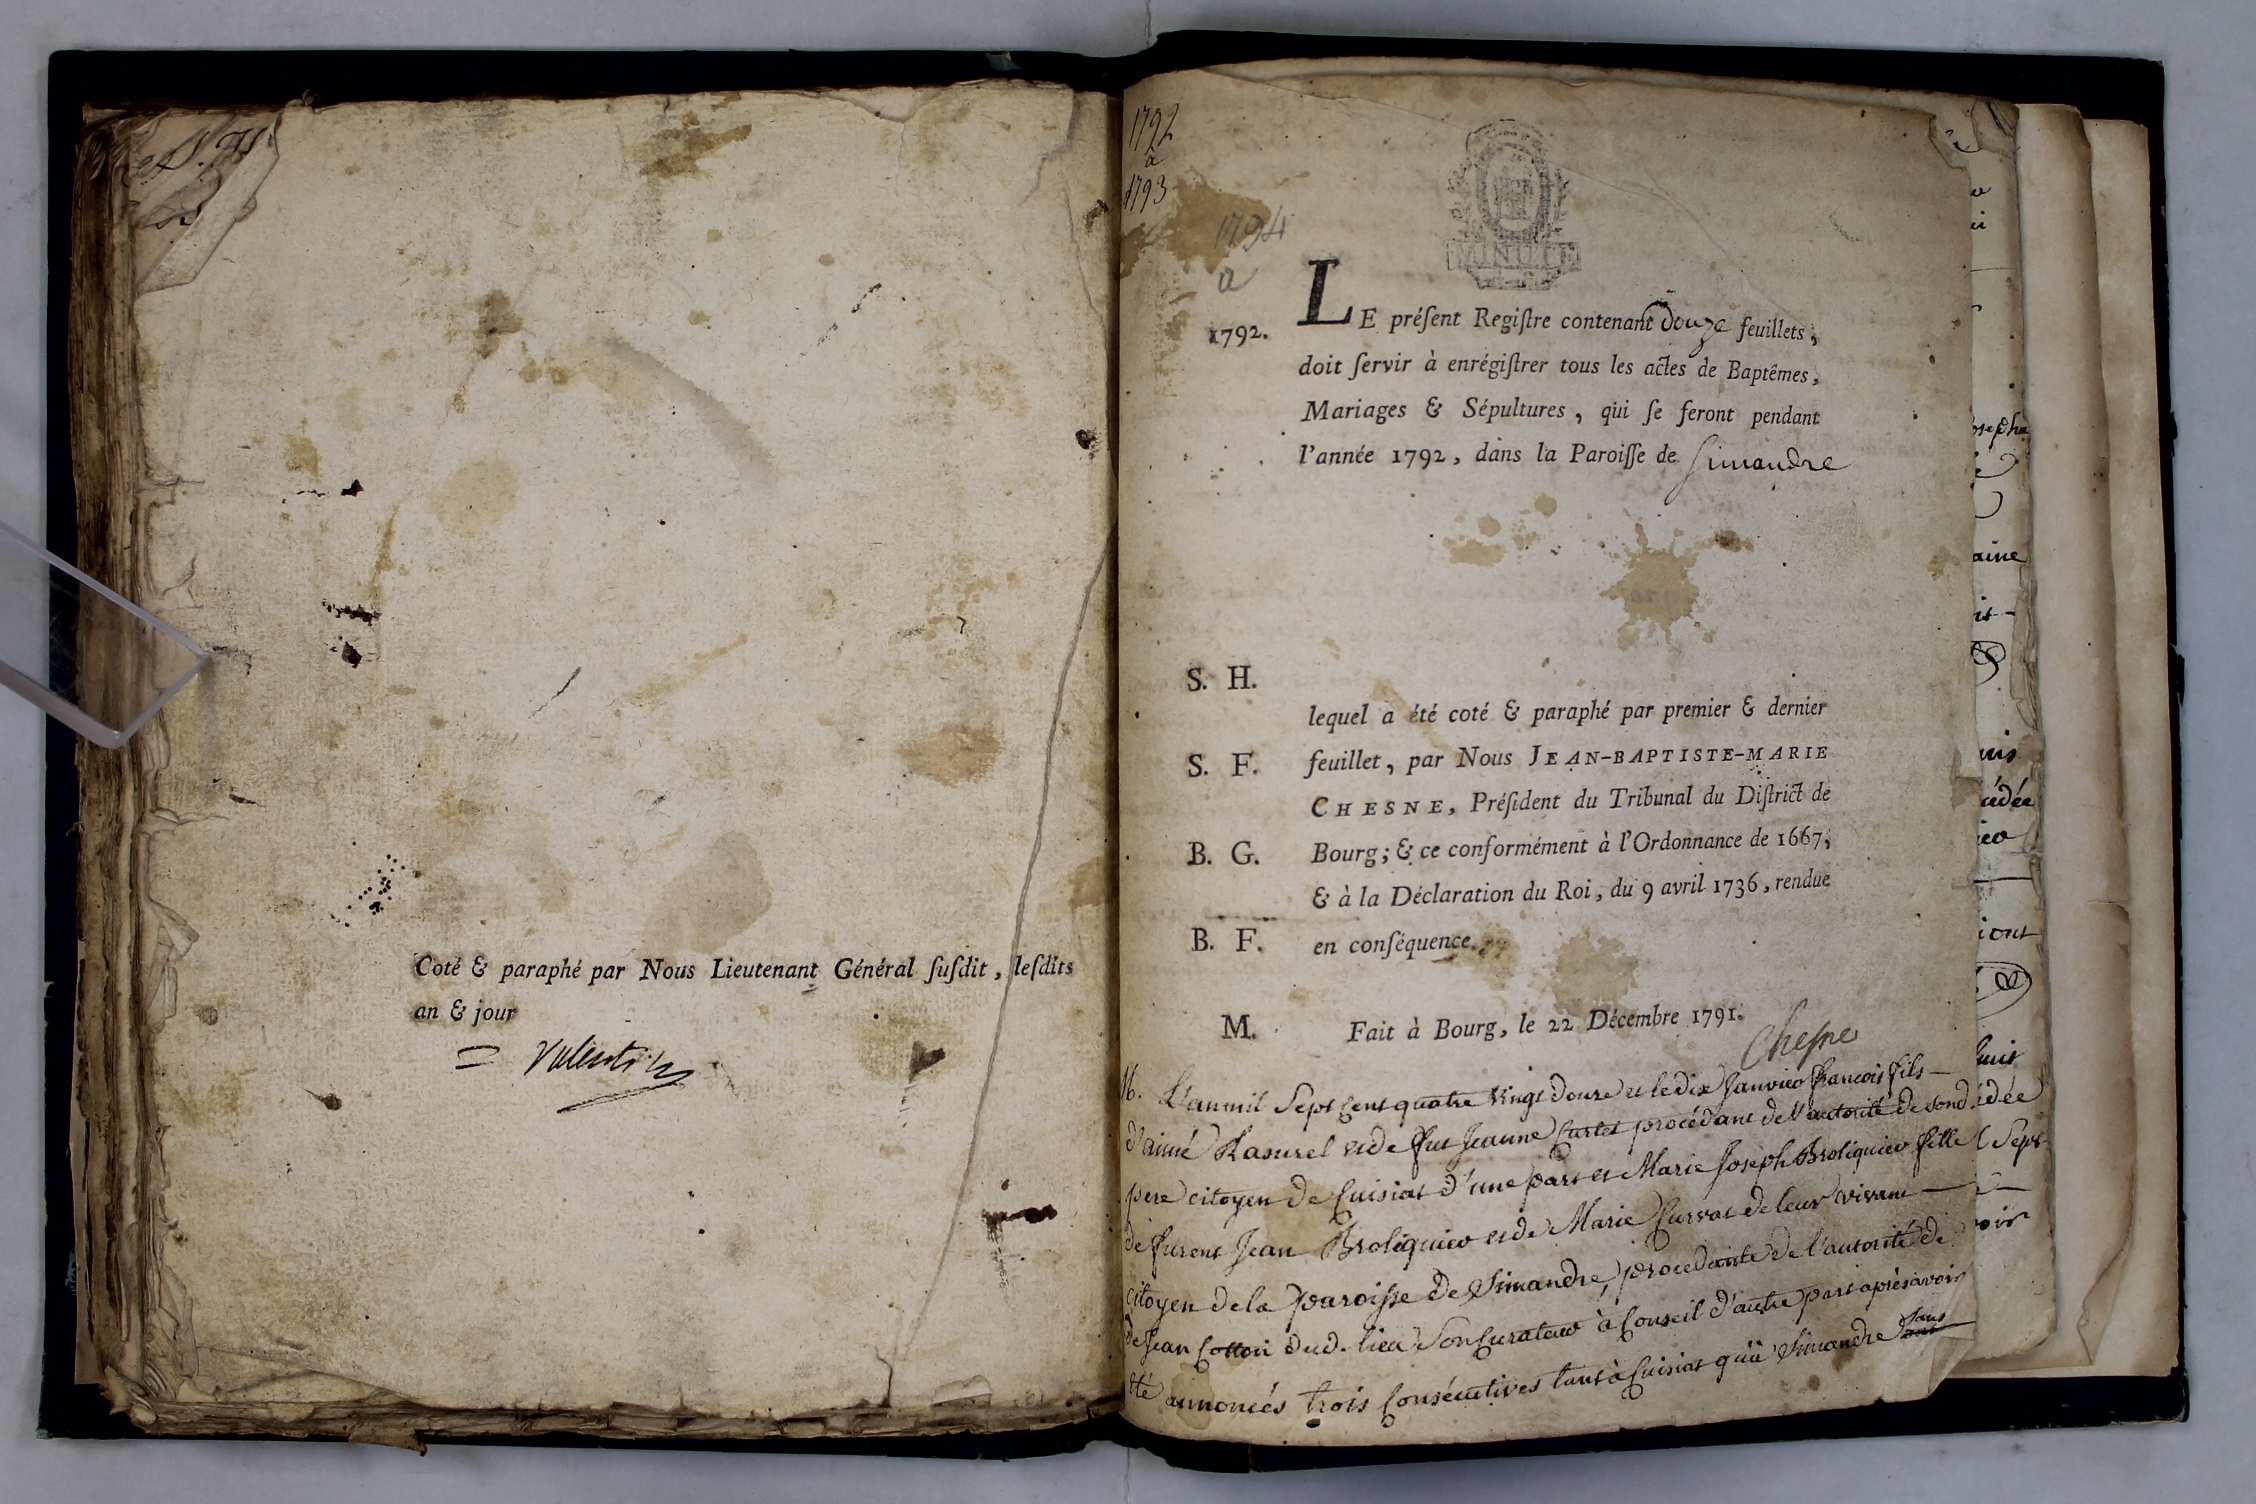 Coté & paraphé par Nous Lieutenant Général ſuſdit, leſdits
an & jour
Valentin
1792
à
1793
1794
a
MINUTE
1792.
LE préſent Regiſtre contenant douze feuillets,
doit ſervir à enrégiſtrer tous les actes de Baptêmes,
Mariages & Sépultures, qui ſe feront pendant
l'année 1792, dans la Paroiſſe de Simandre
S. H.
lequel a été coté & paraphé par premier & dernier
S. F.
feuillet, par Nous JEAN-BAPTISTE-MARIE
CHESNE, Préſident du Tribunal du Diſtrict de
B. G.
Bourg; & ce conformément à l'Ordonnance de 1667,
& à la Déclaration du Roi, du 9 avril 1736, rendue
B. F.
en conſéquence.
M.
Fait à Bourg, le 22 Décembre 1791.
Chesne
L'an mil Sept Cent quatre Vingt douze et le dix Janvier francois fils
d'aimé Rasurel et de fut Jeanne Curtet procédant de l'autorité de son d.
pere citoyen de Cuisiat d'une part et Marie Joseph Broliquier fille
de furent Jean Broliquier et de Marie Curvat de leur vivant
citoyen de la paroisse de Simandre, procedante de l'autorité de
de Jean Cotton dud. lieu Son Curateur à Conseil d'autre part après avoir
été annoncés trois Consécutives tant à Cuisiat qu'à Simandre sans